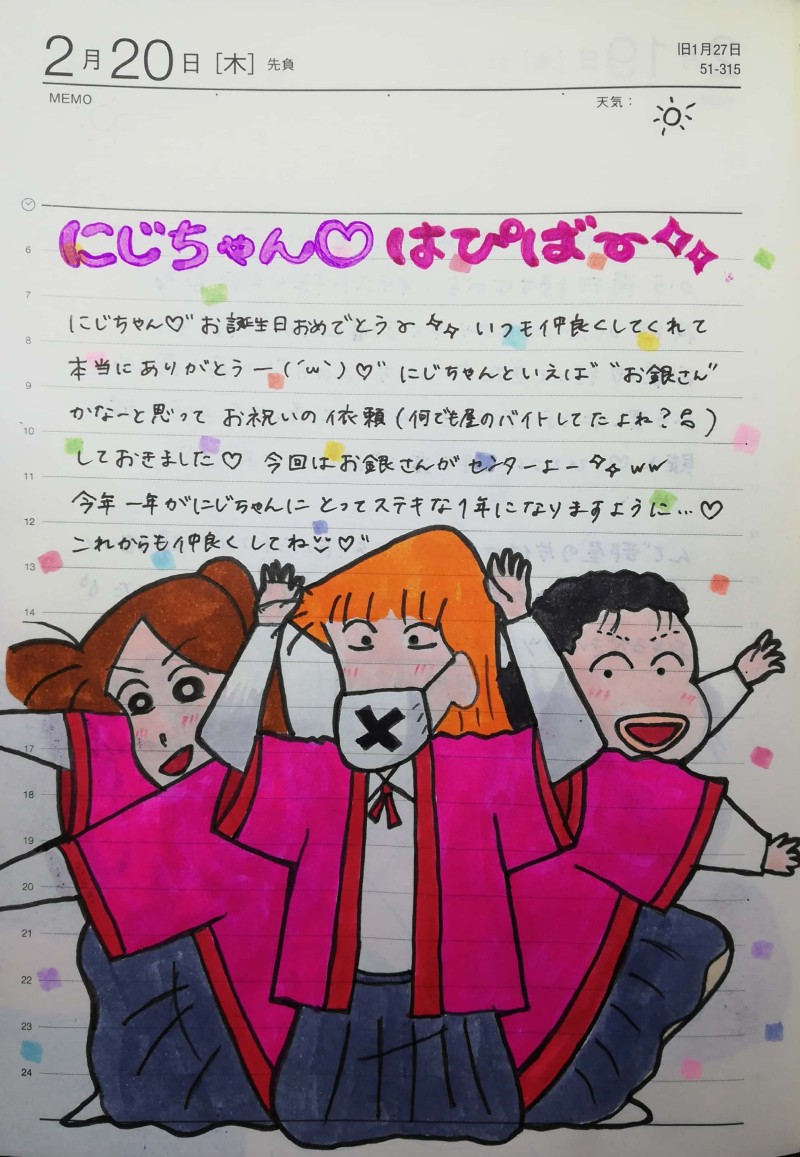 2月20日[木] 先負
旧1月27日
51-315
MEMO
天気：
にじちゃん♡はぴば〜
6
7
8
9
10
11
12
13
14
17
18
19
20
21
22
23
24
にじちゃん♡"お誕生日おめでとう〜 いつも仲良くしてくれて
本当にありがとうー(´ω`)♡" にじちゃんといえば"お銀さん"
かなーと思って お祝いの依頼(何でも屋のバイトしてたよね?
しておきました♡ 今回はお銀さんがセンターよー ww
今年一年がにじちゃんにとってステキな1年になりますように…♡
これからも仲良くしてね♡"